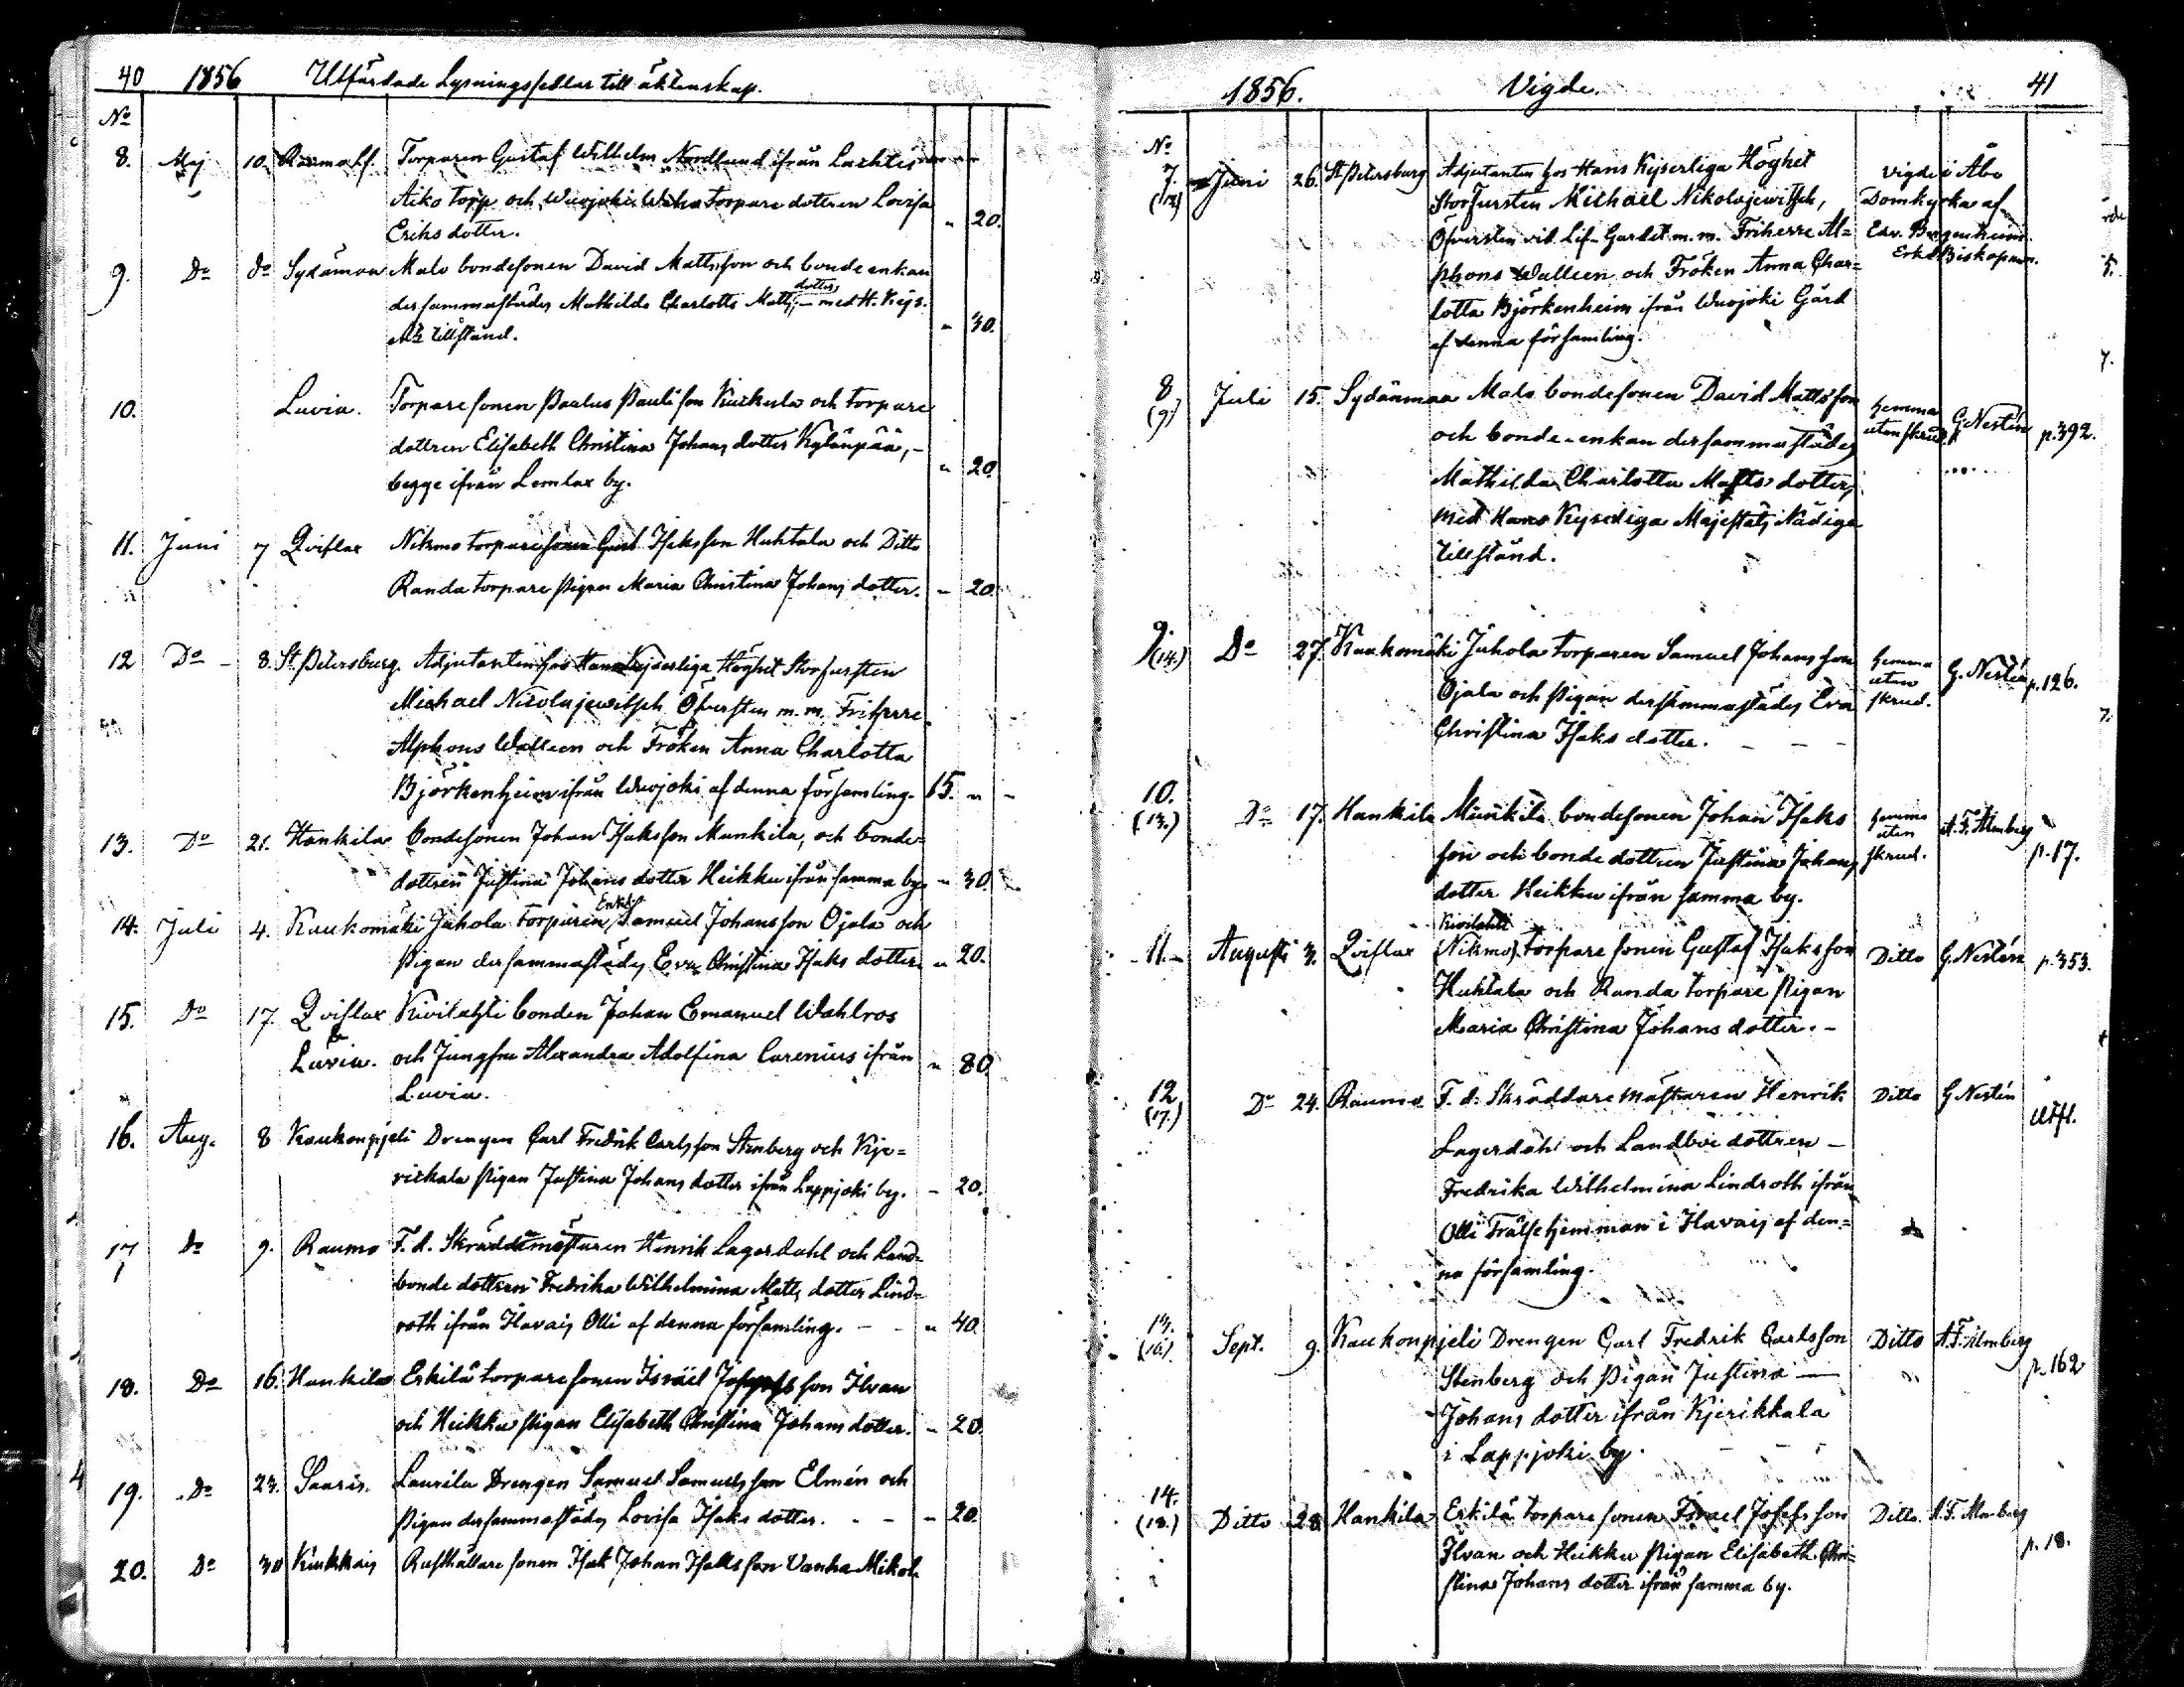 40 1856 Utfärdade Lysningssedlar till äktenskap.
No
8. Maj 10. Raumo lf. Torparen Gustaf Wilhelm Nordlund ifrån Lachtis
Aiko torp och Wuojoki Waha torpare dottren Lovisa
Eriks dotter. " 20.
9. Do do Sydänmaa Malo bondesonen David Mattsson och bonde enkan
dersammastädes Mathilda Charlotta Matts dotter, – med H. Kejs.
Mts tillstånd. " 30.
10. Luvia. Torparesonen Paulus Paulisson Kuikula och torpare
dottren Elisabeth Christina Johans dotter Kylänpää, –
begge ifrån Lemlax by. " 20.
11. Juni 7 Qviflax Nikmo torparesonen Gust. Isaksson Huhtala och Ditto
Randa torpare pigan Maria Christina Johans dotter. – 20.
12 Do – 8. St. Petersburg. Adjutanten hos Hans Kejserliga Höghet Storfursten
Michael Nicolajewitsch Öfversten m.m. Friherre
Alphons Walleen och Fröken Anna Charlotta
Björkenheim ifrån Wuojoki af denna församling. 15. " –
13. Do 21. Hankila bondesonen Johan Isaksson Munkila, och bonde=
dottren Justina Johans dotter Heikku ifrån samma by. " 30
14. Juli 4. Kaukomäki Juhola torparen Enkl. Samuel Johansson Ojala och
Pigan dersammastädes Eva Christina Isaks dotter. " 20.
15. Do 17. Qviflax Kivilahti bonden Johan Emanuel Wahlros
& Luvia. och Jungfru Alexandra Adolfina Carenius ifrån
Luvia. " 80.
16. Aug. 8 Kaukonpjeli Drengen Carl Fredrik Carlsson Stenberg och Kje=
rikkala pigan Justina Johans dotter ifrån Lappjoki by. – 20.
17 do 9. Raumo F. d. Skräddaremästaren Henrik Lagerdahl och Land=
bonde dottren Fredrika Wilhelmina Matts dotter Lind=
roth ifrån Havais Olli af denna församling. – – " 40.
18. Do 16. Hankila Erkilä torparesonen Israel Josephsson Ilvan
och Heikku pigan Elisabeth Christina Johans dotter. – 20.
19. Do 23. Saaris. Laurila Drengen Samuel Samuelsson Elmén och
Pigan dersammastädes Lovisa Isaks dotter. – – – 20.
20. Do 30 Kiukkais Rusthållare sonen Isak Johan Isaksson Vanha Mikola
1856. Vigde. 41
No
7. (12) Juni 26. St. Petersburg Adjutanten hos Hans Kejserliga Höghet vigde i Åbo
Storfursten Michael Nikolajewitsch, Domkyrka af
Öfversten vid Lif-Gardet m.m. Friherre Al= Edv. Bergenheim
phons Walleen och Fröken Anna Char= Erke Biskopen.
lotta Björkenheim ifrån Wuojoki Gård
af denna församling.
8 (9) Juli 15. Sydänmaa Malo bondesonen David Mattsson hemma utan skrud. G. Nestén p. 392.
och bonde-enkan dersammastädes
Mathilda Charlotta Matts dotter,
med Hans Kejserliga Majestäts Nådiga
tillstånd.
9. (14.) Do 27. Kaukomäki Juhola torparen Samuel Johansson hemma utan skrud. G. Nestén p. 126.
Ojala och pigan dersammastädes Eva
Christina Isaks dotter. – – –
10. (13.) Do 17. Hankila Munkila bondesonen Johan Isaks hemma utan skrud. A. F. Almberg p. 17.
son och bonde dottren Justina Johans
dotter Heikku ifrån samma by.
Kivilahti
11. – Augusti 3. Qviflax (Nikmo) torpare sonen Gustaf Isaksson Ditto G. Nestén p. 353.
Huhtala och Randa torpare pigan
Maria Christina Johans dotter. –
12 (17.) Do 24. Raumo F. d. Skräddaremästaren Henrik Ditto G. Nestén Utfl.
Lagerdahl och Landboe dottren –
Fredrika Wilhelmina Lindroth ifrån
Olli Frälsehemman i Havais af den=
na församling.
13. (16) Sept. 9. Kaukonpjeli Drengen Carl Fredrik Carlsson Ditto A. F. Almberg p. 162
Stenberg och Pigan Justina –
Johans dotter ifrån Kjerikkala
i Lappjoki by.
14. (18.) Ditto 28 Hankila Erkilä torpare sonen Israel Josefsson Ditto. A. F. Almberg p. 18.
Ilvan och Heikku pigan Elisabeth Chri=
stina Johans dotter ifrån samma by.